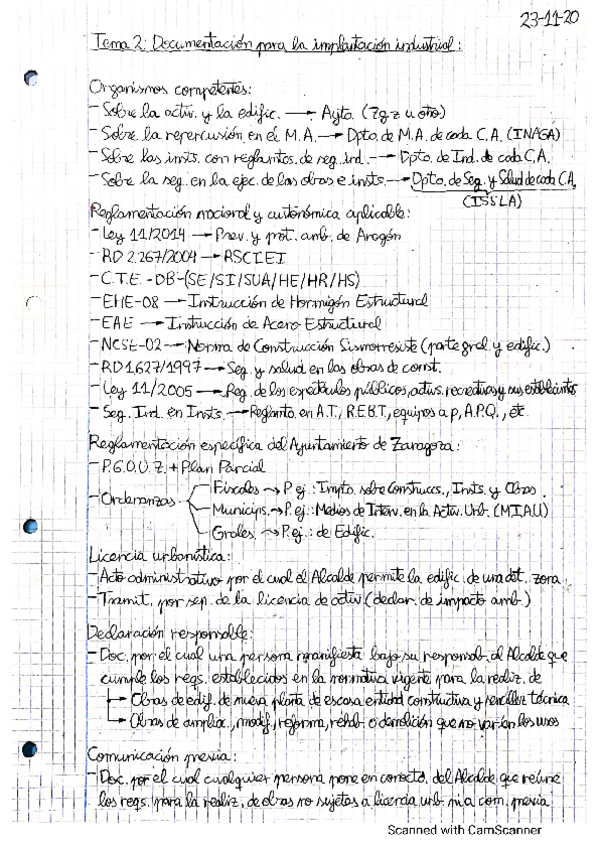 23-11-20
Tema 2: Documentación para la implantación industrial:
Organismos competentes:
- Sobre la activ. y la edific. → Ayto. (Zgz u otro)
- Sobre la repercusión en el M.A. → Dpto. de M.A. de cada C.A. (INAGA)
- Sobre las insts. con reglmtos. de seg. ind. → Dpto. de Ind. de cada C.A.
- Sobre la seg. en la ejec. de las obras e insts. → Dpto. de Seg. y Salud de cada C.A.
(ISSLA)
Reglamentación nacional y autonómica aplicable:
- Ley 11/2014 → Prev. y prot. amb. de Aragón
- RD 2.267/2004 → RSCIEI
- C.T.E. - DB-(SE/SI/SUA/HE/HR/HS)
- EHE-08 → Instrucción de Hormigón Estructural
- EAE → Instrucción de Acero Estructural
- NCSE-02 → Norma de Construcción Sismorresiste (parte gral. y edific.)
- RD 1.627/1997 → Seg. y salud en las obras de const.
- Ley 11/2005 → Reg. de los espectáculos públicos, activs. recreativas y sus
- Seg. Ind. en Insts. → Reglmto. en A.T., R.E.B.T., equipos a p, A.P.Q., etc.
Reglamentación específica del Ayuntamiento de Zaragoza:
- P.G.O.U.Z. + Plan Parcial
- Ordenanzas
Fiscales → P. ej.: Impto. sobre Construccs., Insts. y Obras
Municips. → P. ej.: Medios de Interv. en la Activ. Urb. (MIAU)
Grales. → P. ej.: de Edific.
Licencia urbanística:
- Acto administrativo por el cual el Alcalde permite la edific. de una det. zona
- Tramit. por sep. de la licencia de activ (declar. de impacto amb.)
Declaración responsable:
- Doc. por el cual una persona manifiesta bajo su responsab. al Alcalde que
cumple los reqs. establecidos en la normativa vigente para la realiz. de
→ Obras de edif. de nueva planta de escasa entidad constructiva y sencillez técnica
→ Obras de amplia., modif., reforma, rehab. o demolición que no varíen los usos
Comunicación previa:
- Doc. por el cual cualquier persona pone en conocto. del Alcalde que reúne
los reqs. para la realiz. de obras no sujetas a licencia urb. ni a com. previa
Scanned with CamScanner